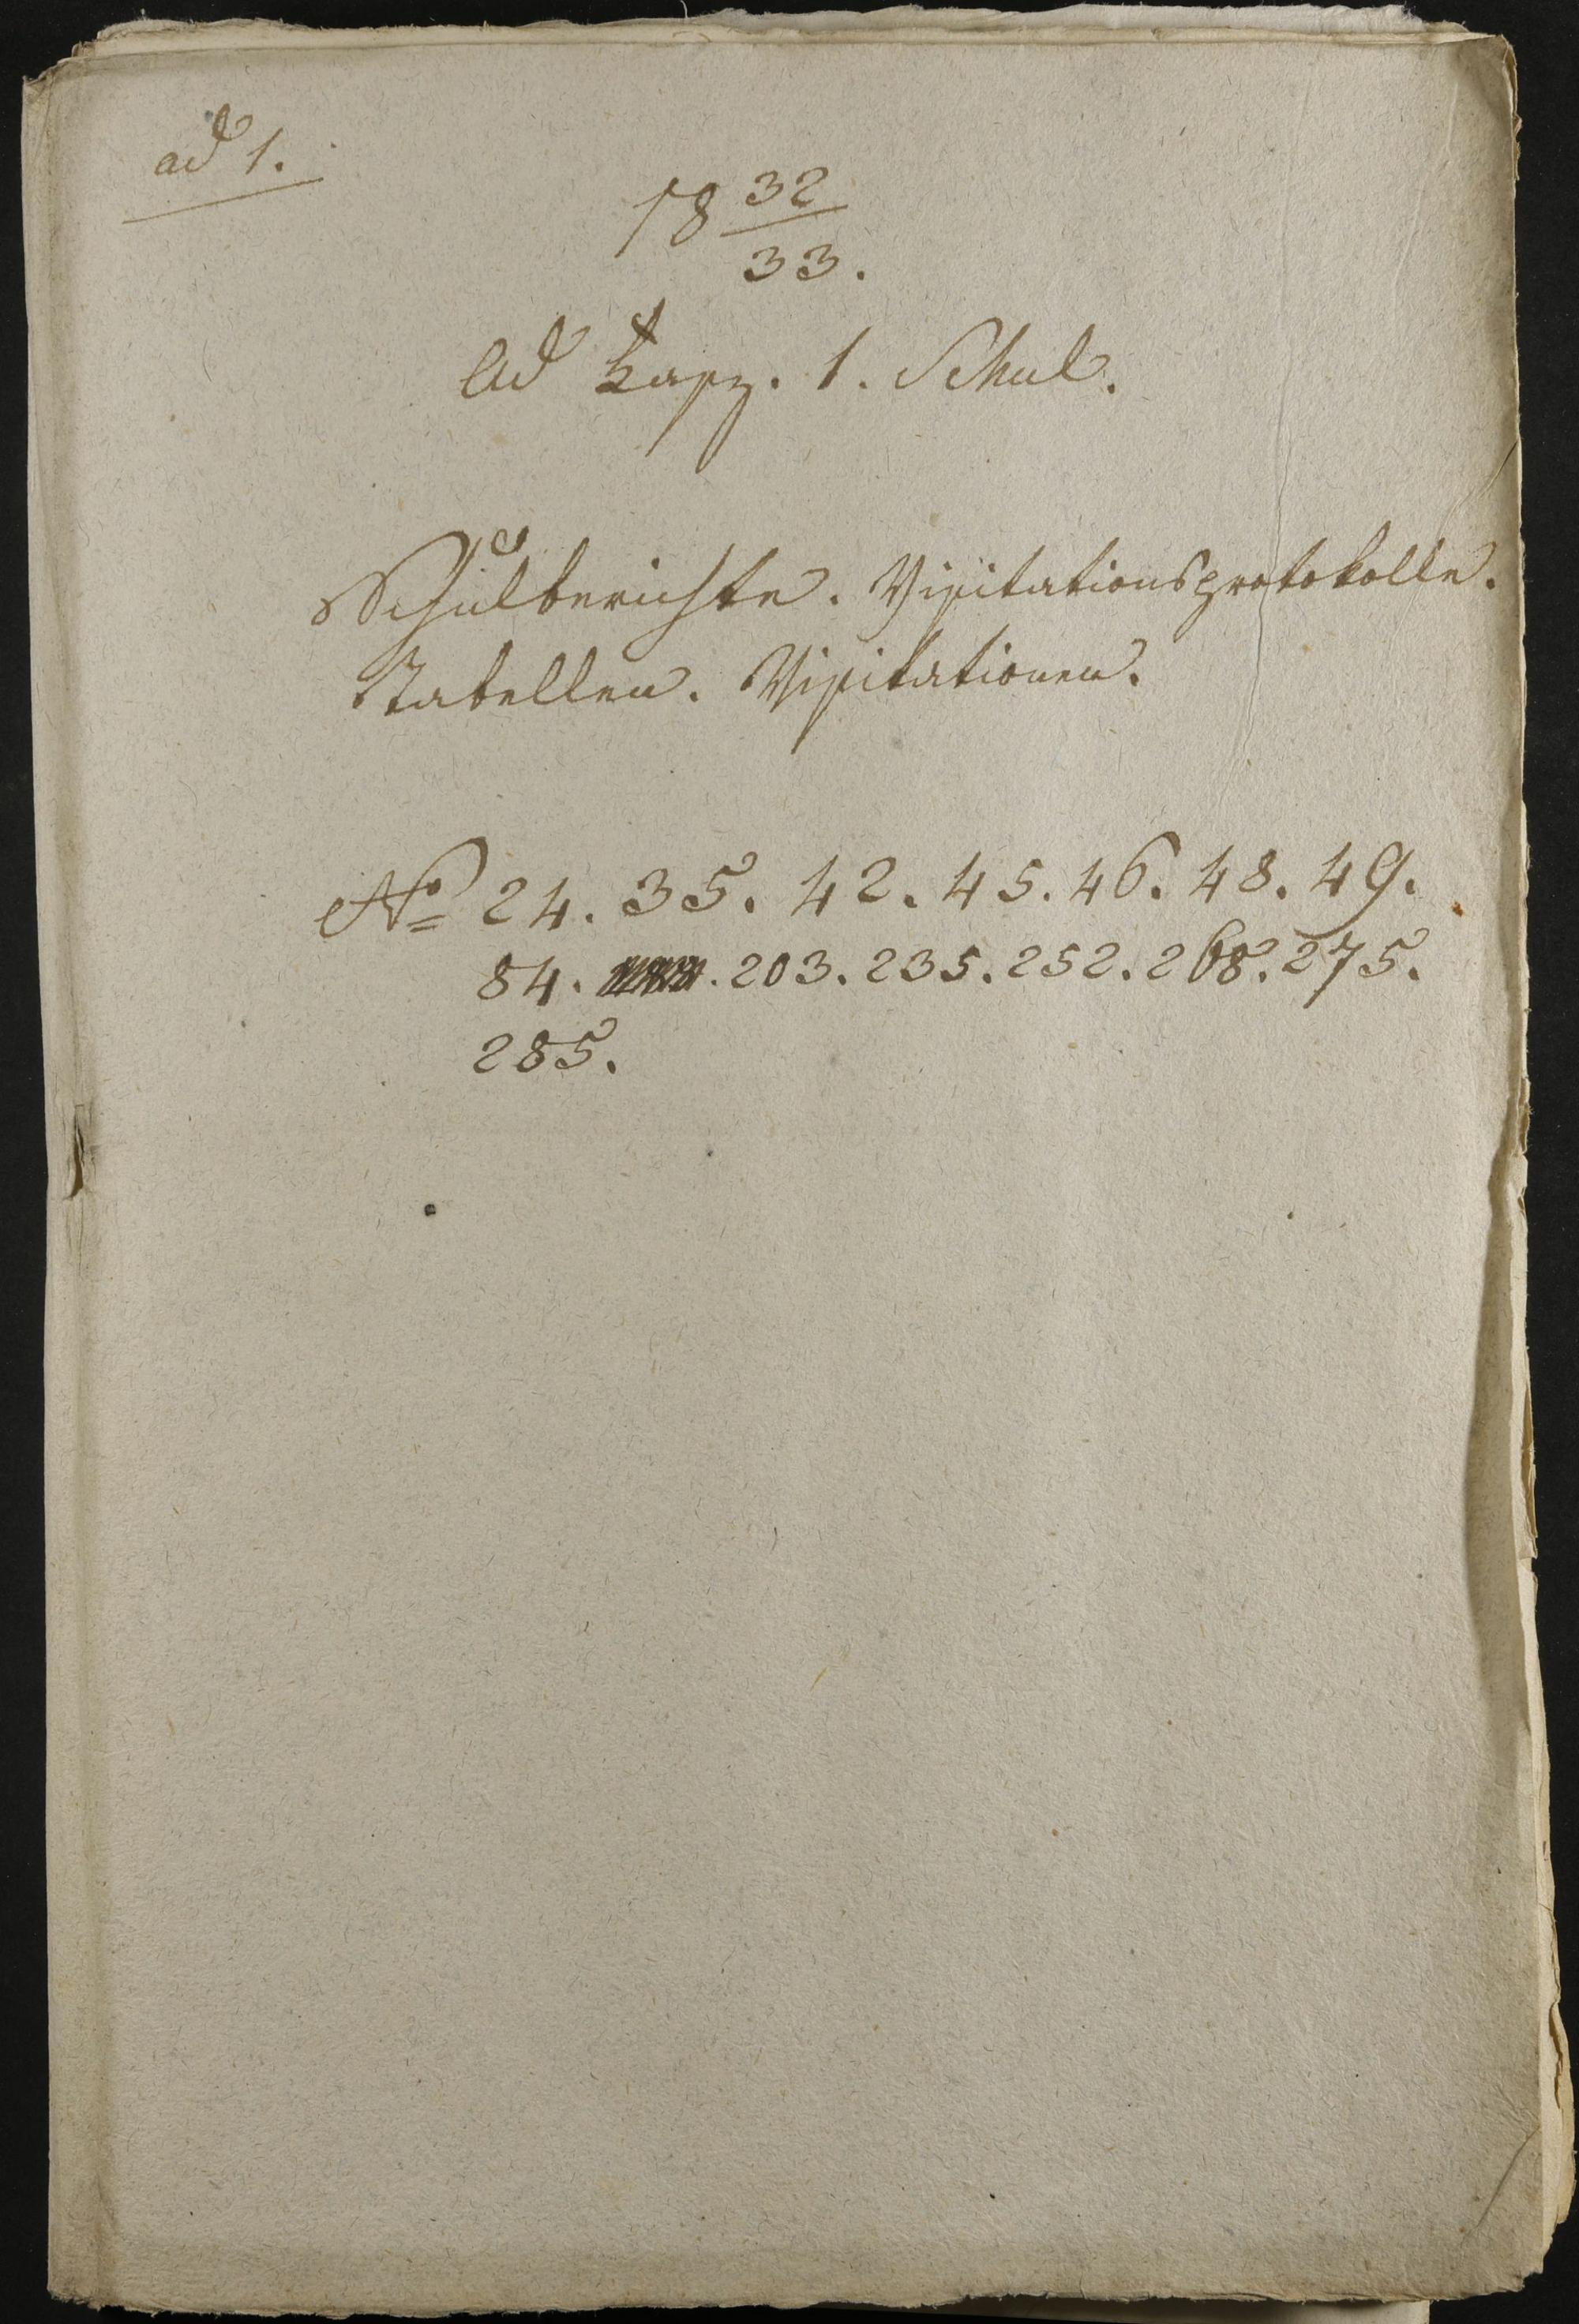 ad 1.
18 32/33.
Ad Fasz. 1. Schul.
Schulberichte. Visitationsprotokolle.
Tabellen. Visitationen.
No 24. 35. 42. 45. 46. 48. 49.
84. 203. 235. 252. 268. 275.
285.